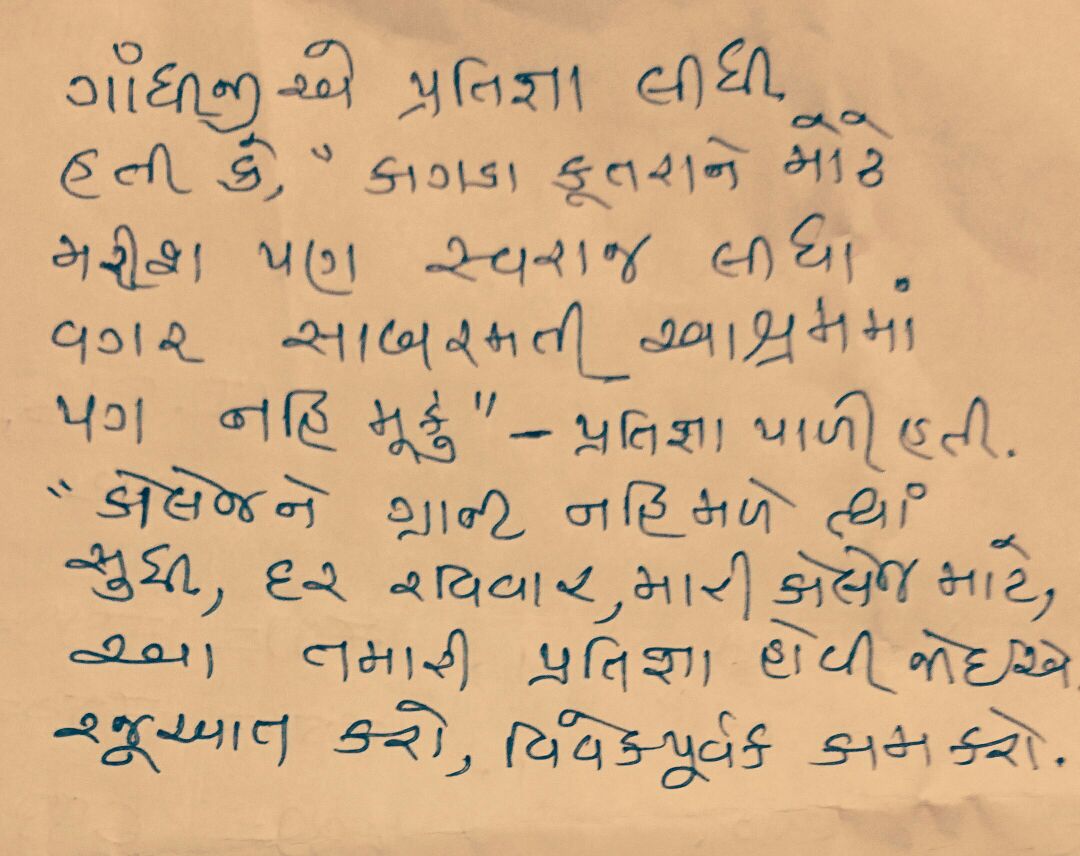 ગાંધીજીએ પ્રતિજ્ઞા લીધી
હતી કે, "કાગડા કૂતરાને મોતે
મરીશ પણ સ્વરાજ લીધા
વગર સાબરમતી આશ્રમમાં
પગ નહિ મૂકું" – પ્રતિજ્ઞા પાળી હતી.
"કોલેજને ગ્રાન્ટ નહિ મળે ત્યાં
સુધી, દર રવિવાર, મારી કોલેજ માટે,
આ તમારી પ્રતિજ્ઞા હોવી જોઇએ
રજૂઆત કરો, વિવેકપૂર્વક કામ કરો.